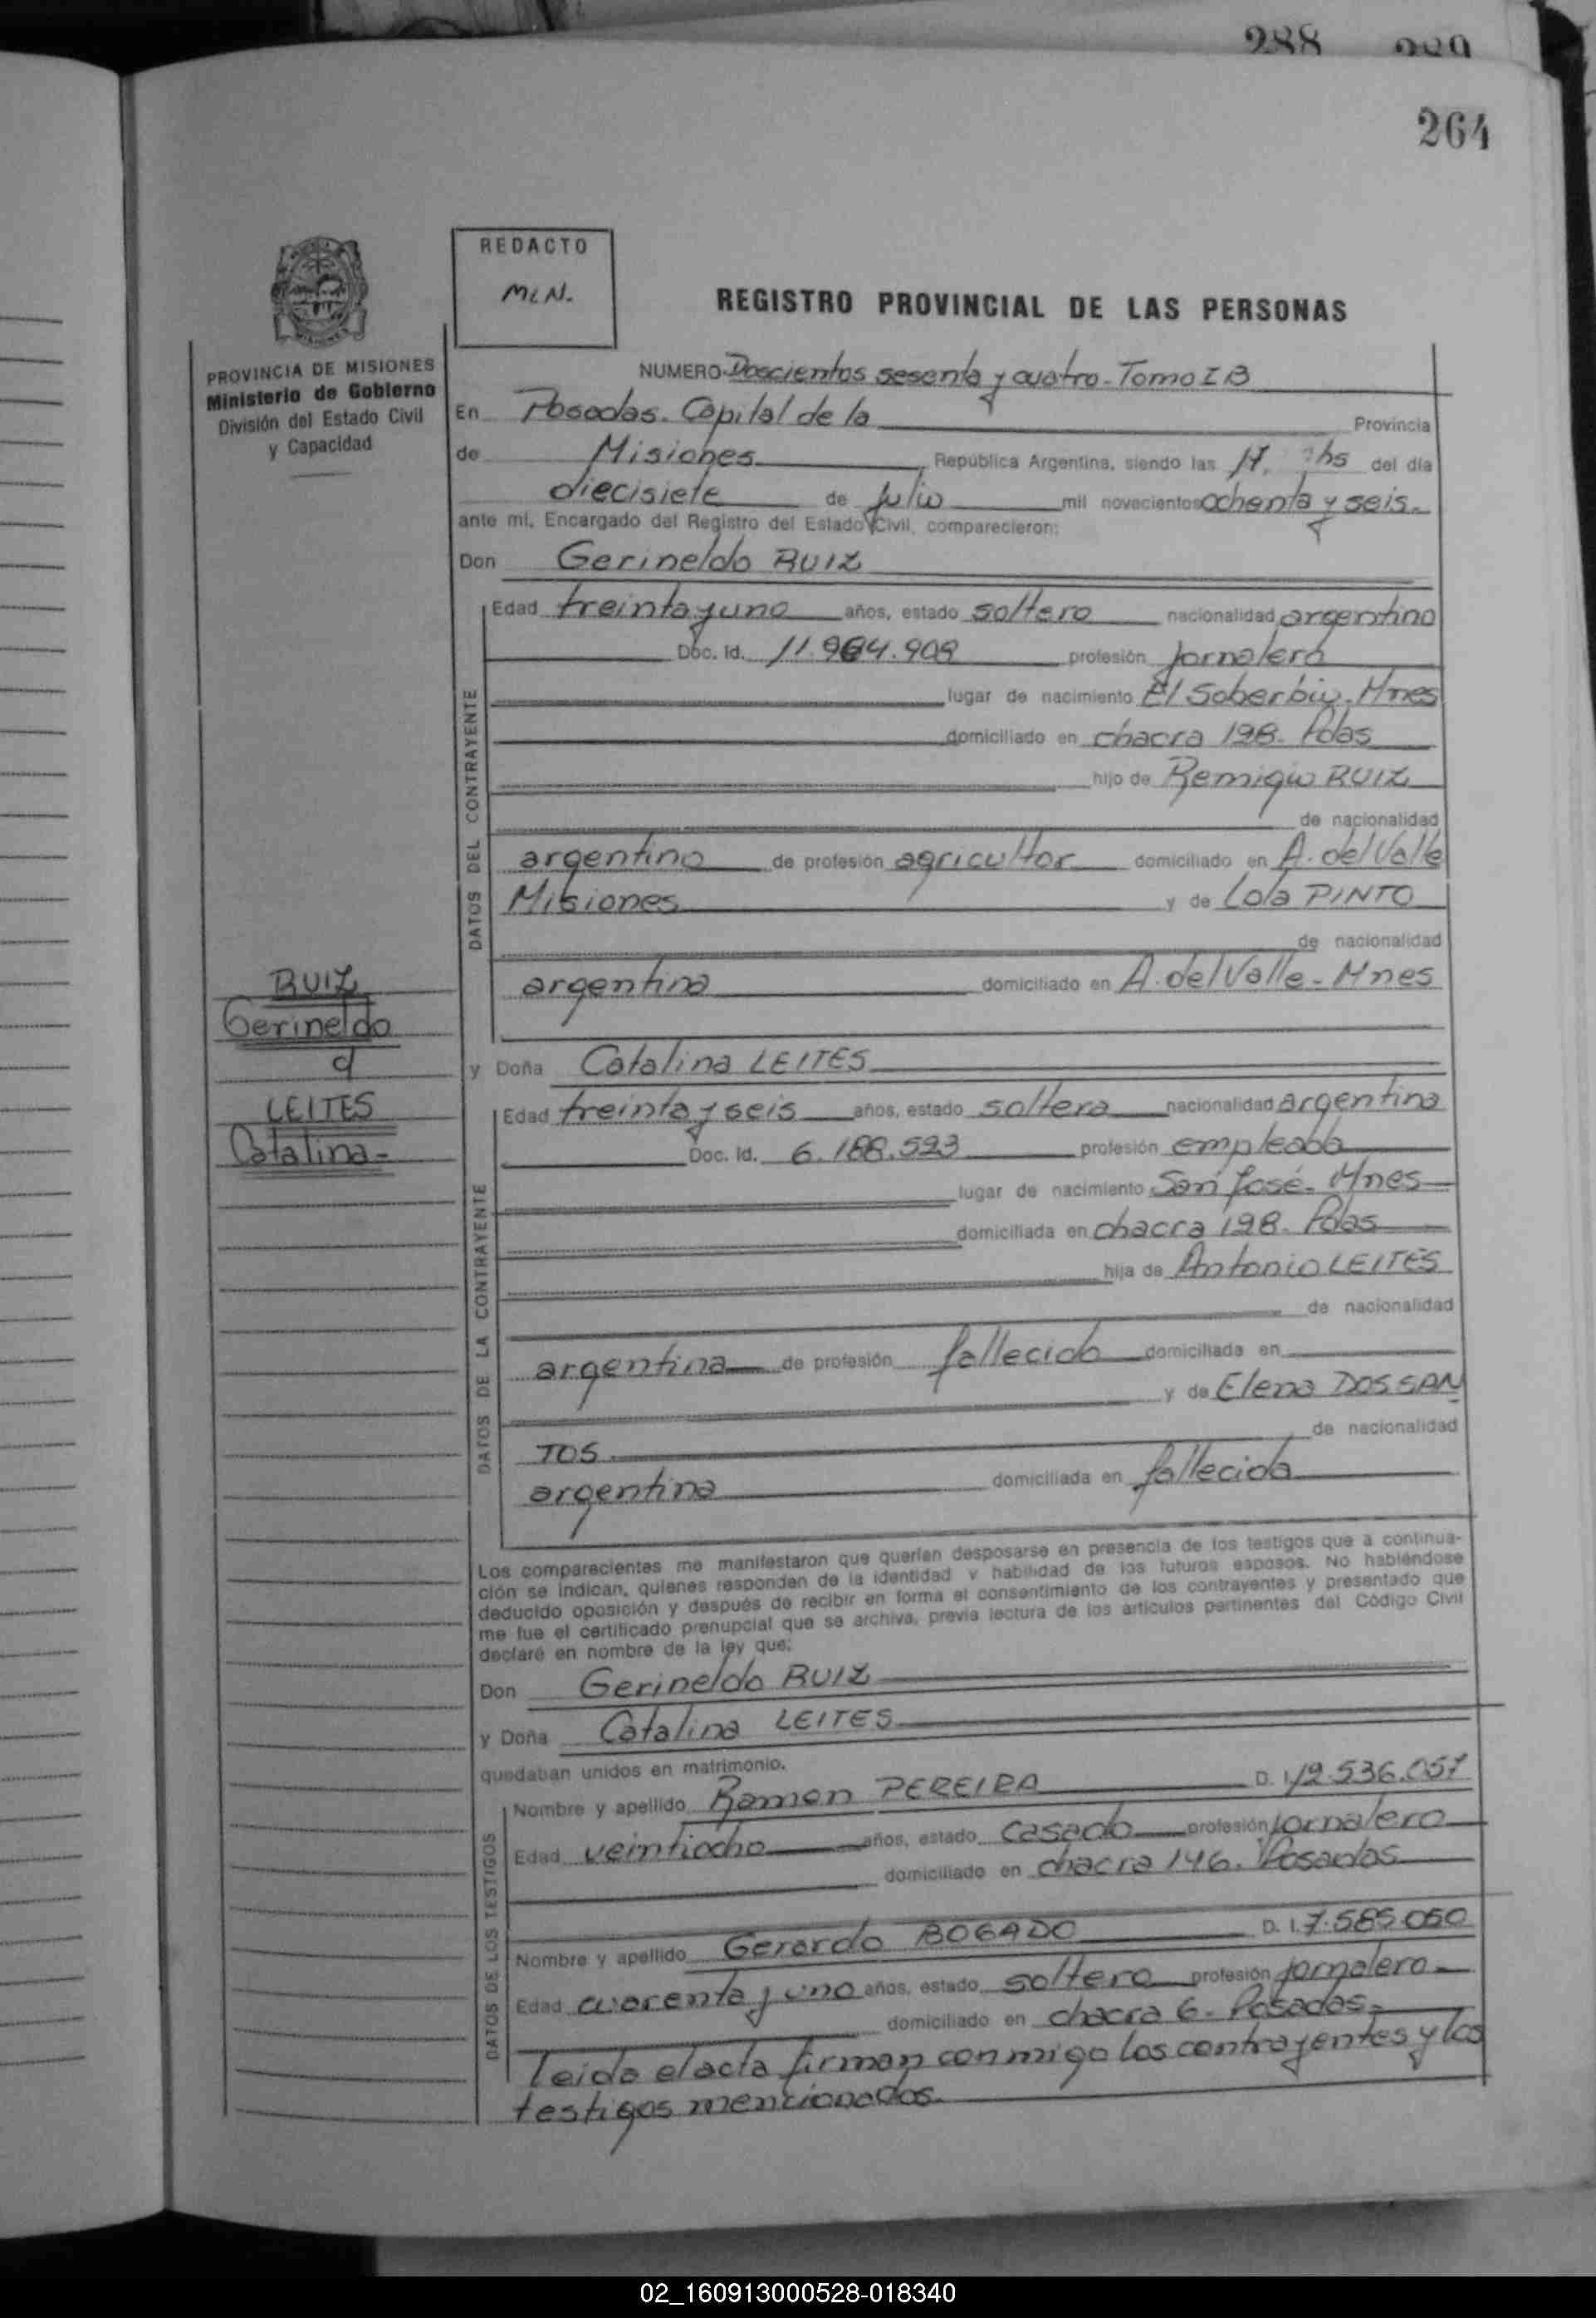 288 289
264
REDACTO
M.L.N.
REGISTRO PROVINCIAL DE LAS PERSONAS
PROVINCIA DE MISIONES
Ministerio de Gobierno
División del Estado Civil
y Capacidad
NUMERO Doscientos sesenta y cuatro - Tomo I B
En Posadas. Capital de la Provincia
de Misiones República Argentina, siendo las 17. hs del día
diecisiete de julio mil novecientos ochenta y seis.
ante mí, Encargado del Registro del Estado Civil, comparecieron:
Don Gerineldo RUIZ
DATOS DEL CONTRAYENTE
Edad treinta y uno años, estado soltero nacionalidad argentino
Doc. Id. profesión jornalero
lugar de nacimiento El Soberbio. Mnes
domiciliado en chacra 198. Pdas
hijo de Remigio RUIZ
de nacionalidad
argentino de profesión agricultor domiciliado en A. del Valle
Misiones y de Lola PINTO
de nacionalidad
argentina domiciliado en A. del Valle - Mnes
RUIZ
Gerineldo
LEITES
Catalina-
y Doña Catalina LEITES
DATOS DE LA CONTRAYENTE
Edad treinta y seis años, estado soltera nacionalidad argentina
Doc. Id. 6.188.523 profesión empleada
lugar de nacimiento San José. Mnes
domiciliada en chacra 198. Pdas
hija de Antonio LEITES
de nacionalidad
argentina de profesión fallecido domiciliada en
y de Elena DOS SAN
TOS de nacionalidad
argentina domiciliada en fallecida
Los comparecientes me manifestaron que querían desposarse en presencia de los testigos que a continua-
ción se indican, quienes responden de la identidad y habilidad de los futuros esposos. No habiéndose
deducido oposición y después de recibir en forma el consentimiento de los contrayentes y presentado que
me fue el certificado prenupcial que se archiva, previa lectura de los artículos pertinentes del Código Civil
declaré en nombre de la ley que:
Don Gerineldo RUIZ
y Doña Catalina LEITES
quedaban unidos en matrimonio.
DATOS DE LOS TESTIGOS
Nombre y apellido Ramon PEREIRA D. I. 12.536.057
Edad veintiocho años, estado casado profesión jornalero
domiciliado en chacra 146. Posadas
Nombre y apellido Gerardo BOGADO D. I. 7.585.050
Edad cuarenta y uno años, estado soltero profesión jornalero-
domiciliado en chacra 6- Posadas-
leida el acta firman conmigo los contrayentes y los
testigos mencionados.
02_160913000528-018340